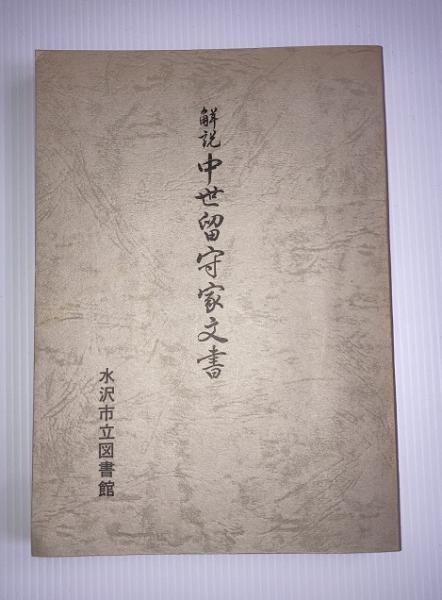 解説 中世留守家文書
水沢市立図書館